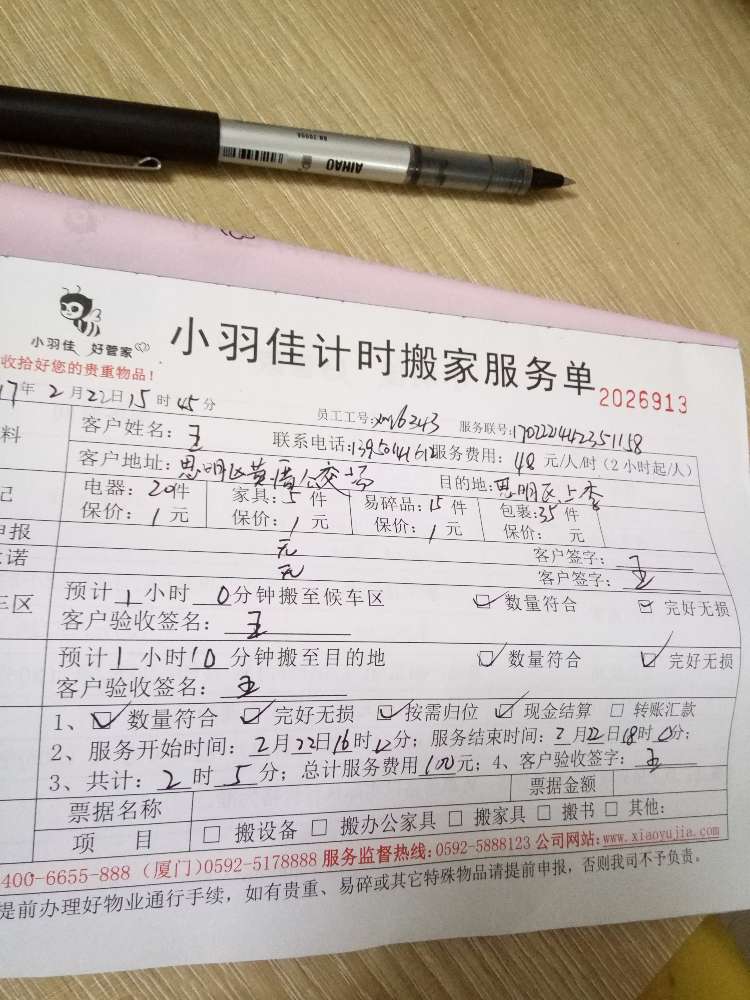 AIHAO
小羽佳 好管家
小羽佳计时搬家服务单 2026913
收拾好您的贵重物品！
17年2月22日15时45分
员工工号：xm6243 服务联号：1702221442351158
料 客户姓名：王 联系电话： 服务费用：48元/人/时（2小时起/人）
客户地址：思明区黄厝公交场 目的地：思明区上李
记 电器：20件 家具：5件 易碎品：15件 包裹：35件
保价：1元 保价：1元 保价：1元 保价： 元
申报 元 客户签字：王
诺 元 客户签字：王
车区 预计1小时0分钟搬至候车区 ☑数量符合 ☑完好无损
客户验收签名：王
预计1小时10分钟搬至目的地 ☑数量符合 ☑完好无损
客户验收签名：王
1、☑数量符合 ☑完好无损 ☑按需归位 ☑现金结算 □转账汇款
2、服务开始时间：2月22日16时12分；服务结束时间：2月22日18时0分；
3、共计：2时5分；总计服务费用100元；4、客户验收签字：王
票据名称 票据金额
项 目 □搬设备 □搬办公家具 □搬家具 □搬书 □其他：
400-6655-888（厦门）0592-5178888 服务监督热线：0592-5888123 公司网站：www.xiaoyujia.com
提前办理好物业通行手续，如有贵重、易碎或其它特殊物品请提前申报，否则我司不予负责。